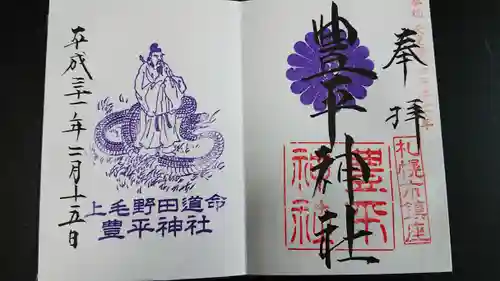 奉拝
豊平神社
札幌市鎮座
豊平神社
上毛野田道命
豊平神社
平成三十一年二月十五日